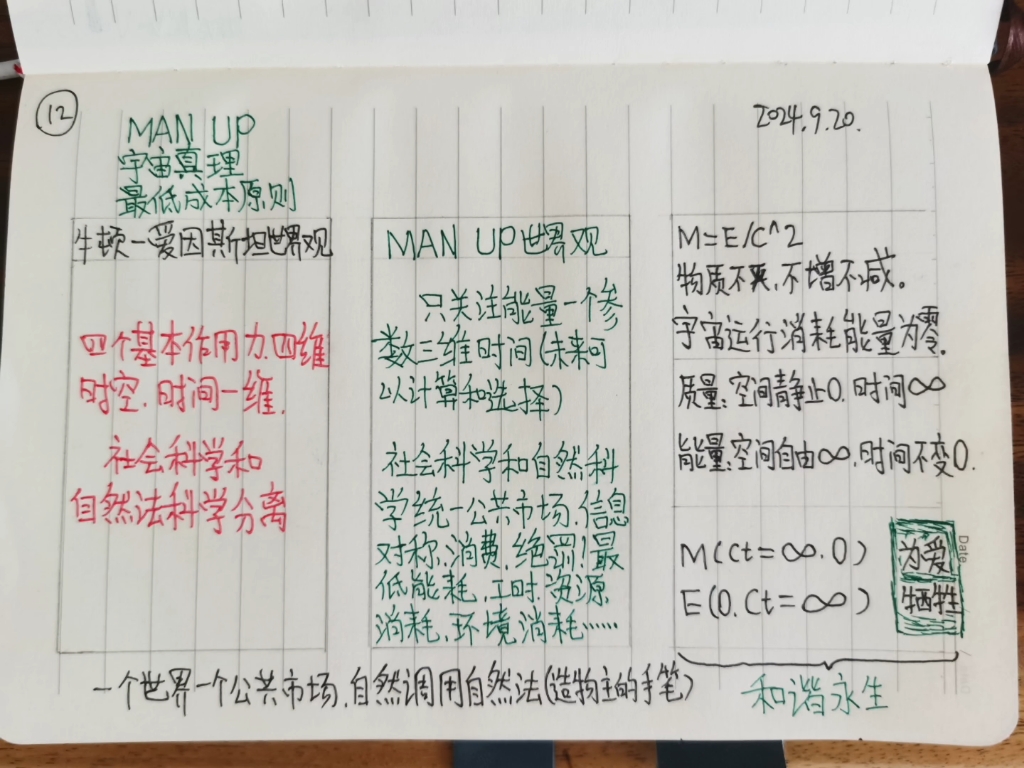 12
MAN UP
宇宙真理
最低成本原则
2024.9.20.
牛顿-爱因斯坦世界观
四个基本作用力.四维
时空.时间一维.
社会科学和
自然法科学分离
MAN UP世界观
只关注能量一个参
数三维时间(未来可
以计算和选择)
社会科学和自然科
学统一公共市场.信息
对称.消费.绝罚!最
低能耗.工时.资源
消耗.环境消耗……
M=E/C^2
物质不灭.不增不减。
宇宙运行消耗能量为零.
质量:空间静止0.时间∞
能量:空间自由∞.时间不变0.
M(Ct=∞.0)
E(0.Ct=∞)
为爱
牺牲
Date
一个世界一个公共市场.自然调用自然法(造物主的手笔)
和谐永生